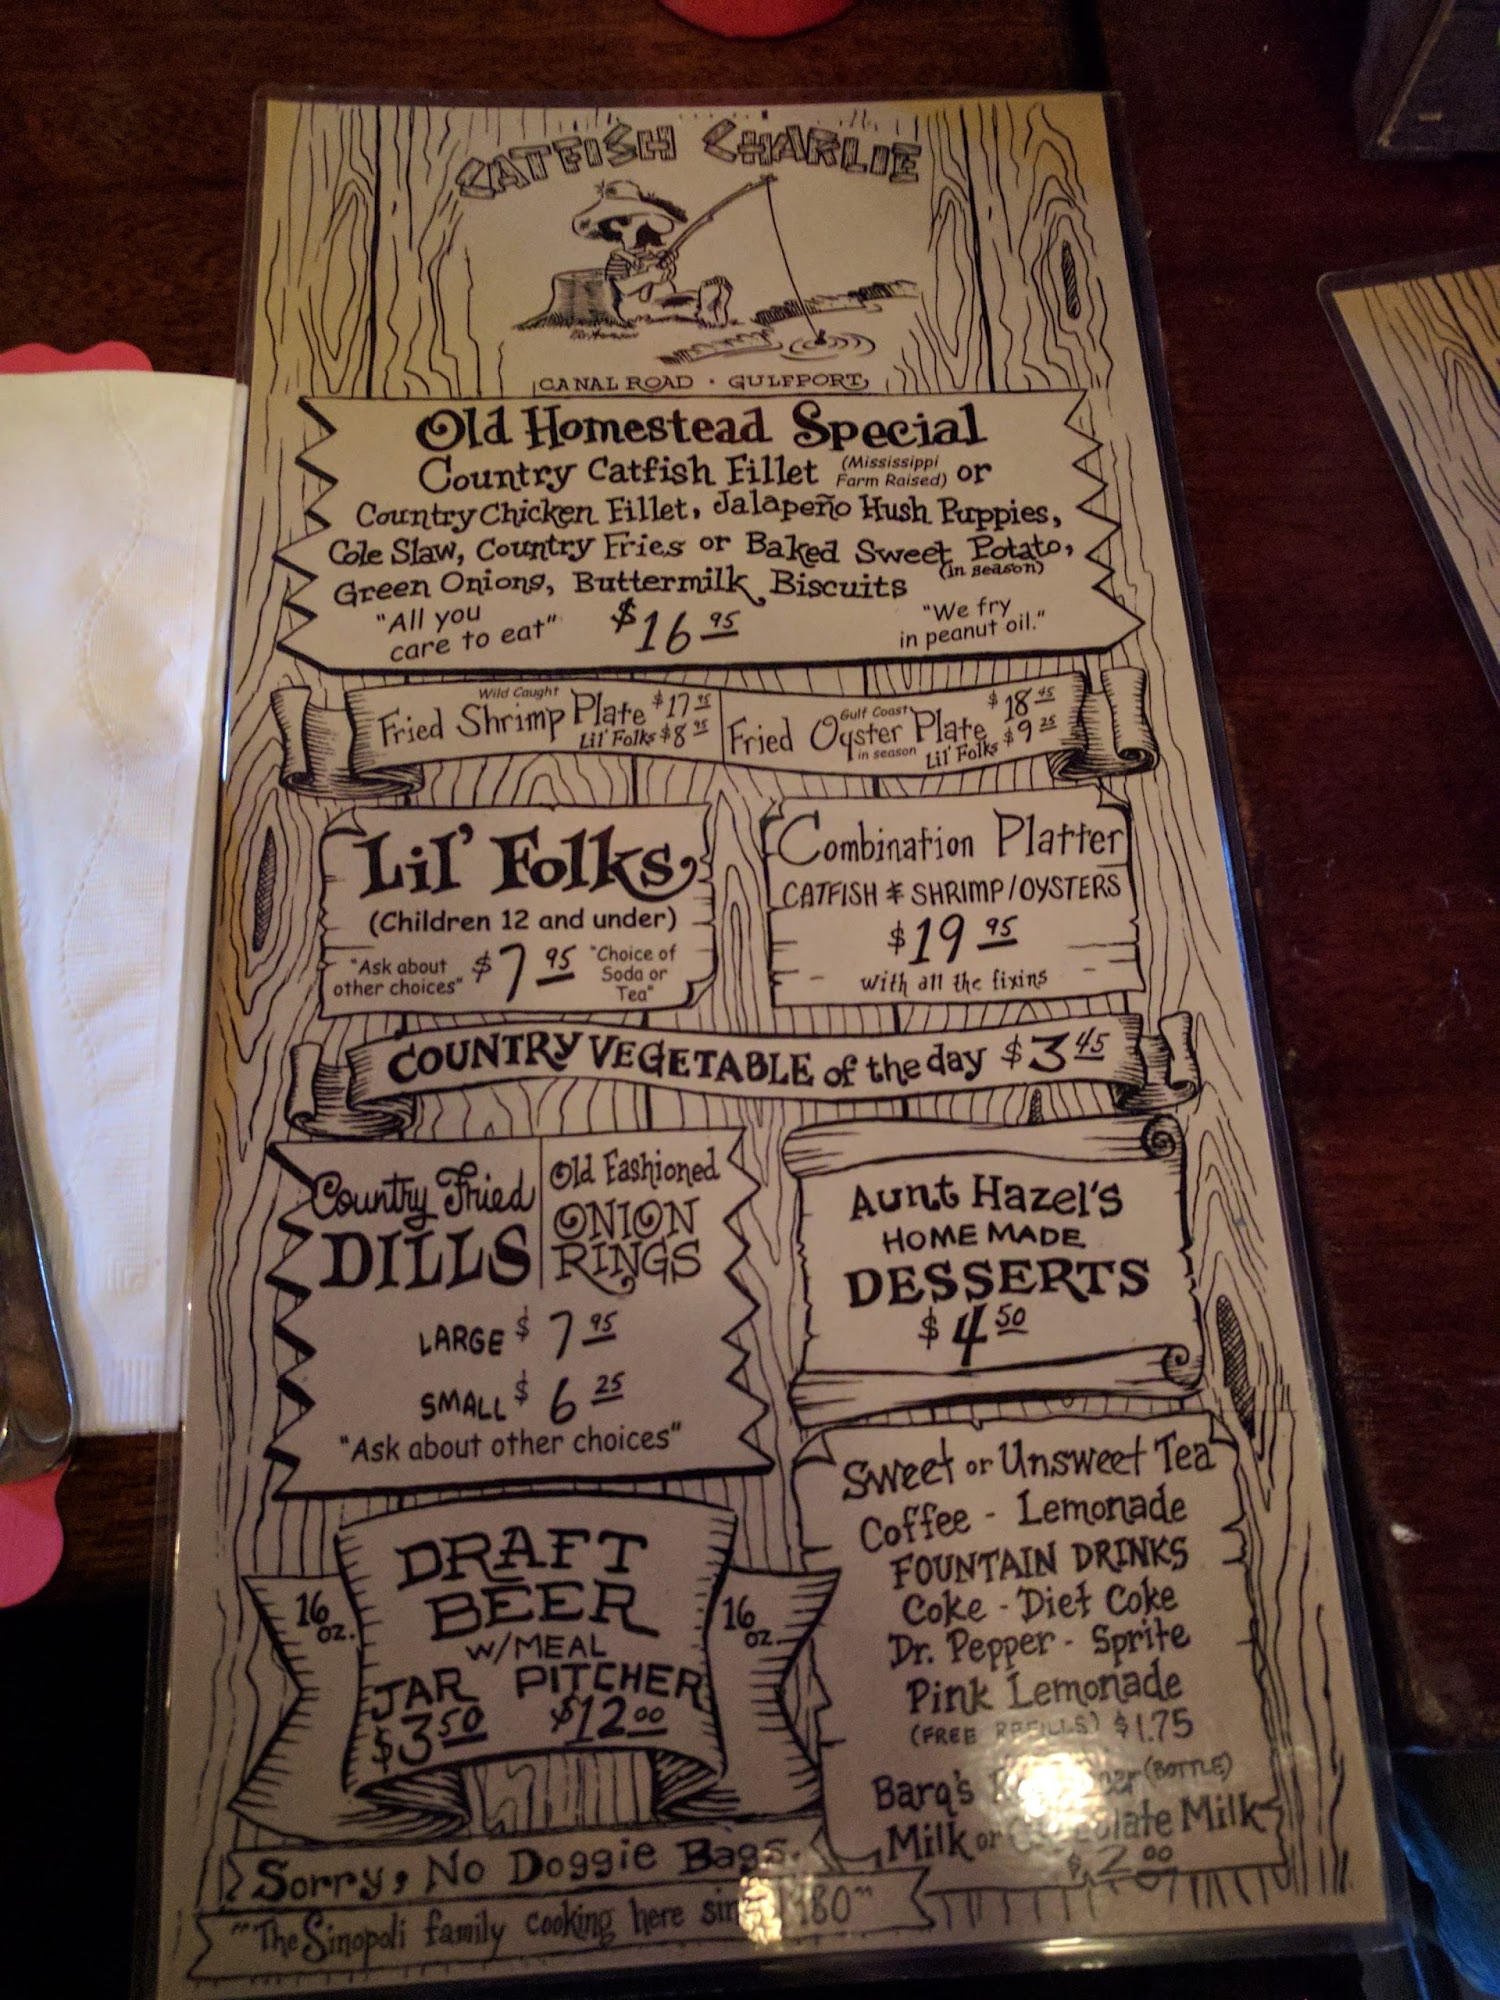 CATFISH CHARLIE
CANAL ROAD · GULFPORT
Old Homestead Special
Country Catfish Fillet (Mississippi Farm Raised) or
Country Chicken Fillet, Jalapeño Hush Puppies,
Cole Slaw, Country Fries or Baked Sweet Potato,
(in season)
Green Onions, Buttermilk Biscuits
"All you
care to eat"
$16 95
"We fry
in peanut oil."
Wild Caught
Fried Shrimp Plate $17 95
Lil' Folks $8 95
Gulf Coast
Fried Oyster Plate $18 45
in season Lil' Folks $9 25
Lil' Folks
(Children 12 and under)
"Ask about
other choices"
$7 95
"Choice of
Soda or
Tea"
Combination Platter
CATFISH & SHRIMP/OYSTERS
$19 95
with all the fixins
COUNTRY VEGETABLE of the day $3 45
Country Fried
DILLS
Old Fashioned
ONION
RINGS
LARGE $7 95
SMALL $6 25
"Ask about other choices"
Aunt Hazel's
HOME MADE
DESSERTS
$4 50
DRAFT
BEER
W/MEAL
16 oz.
16 oz.
JAR
$3 50
PITCHER
$12 00
Sweet or Unsweet Tea
Coffee - Lemonade
FOUNTAIN DRINKS
Coke - Diet Coke
Dr. Pepper - Sprite
Pink Lemonade
(FREE REFILLS) $1.75
Barq's (BOTTLE)
Milk or Chocolate Milk
$2 00
Sorry, No Doggie Bags.
"The Sinopoli family cooking here since 1980"